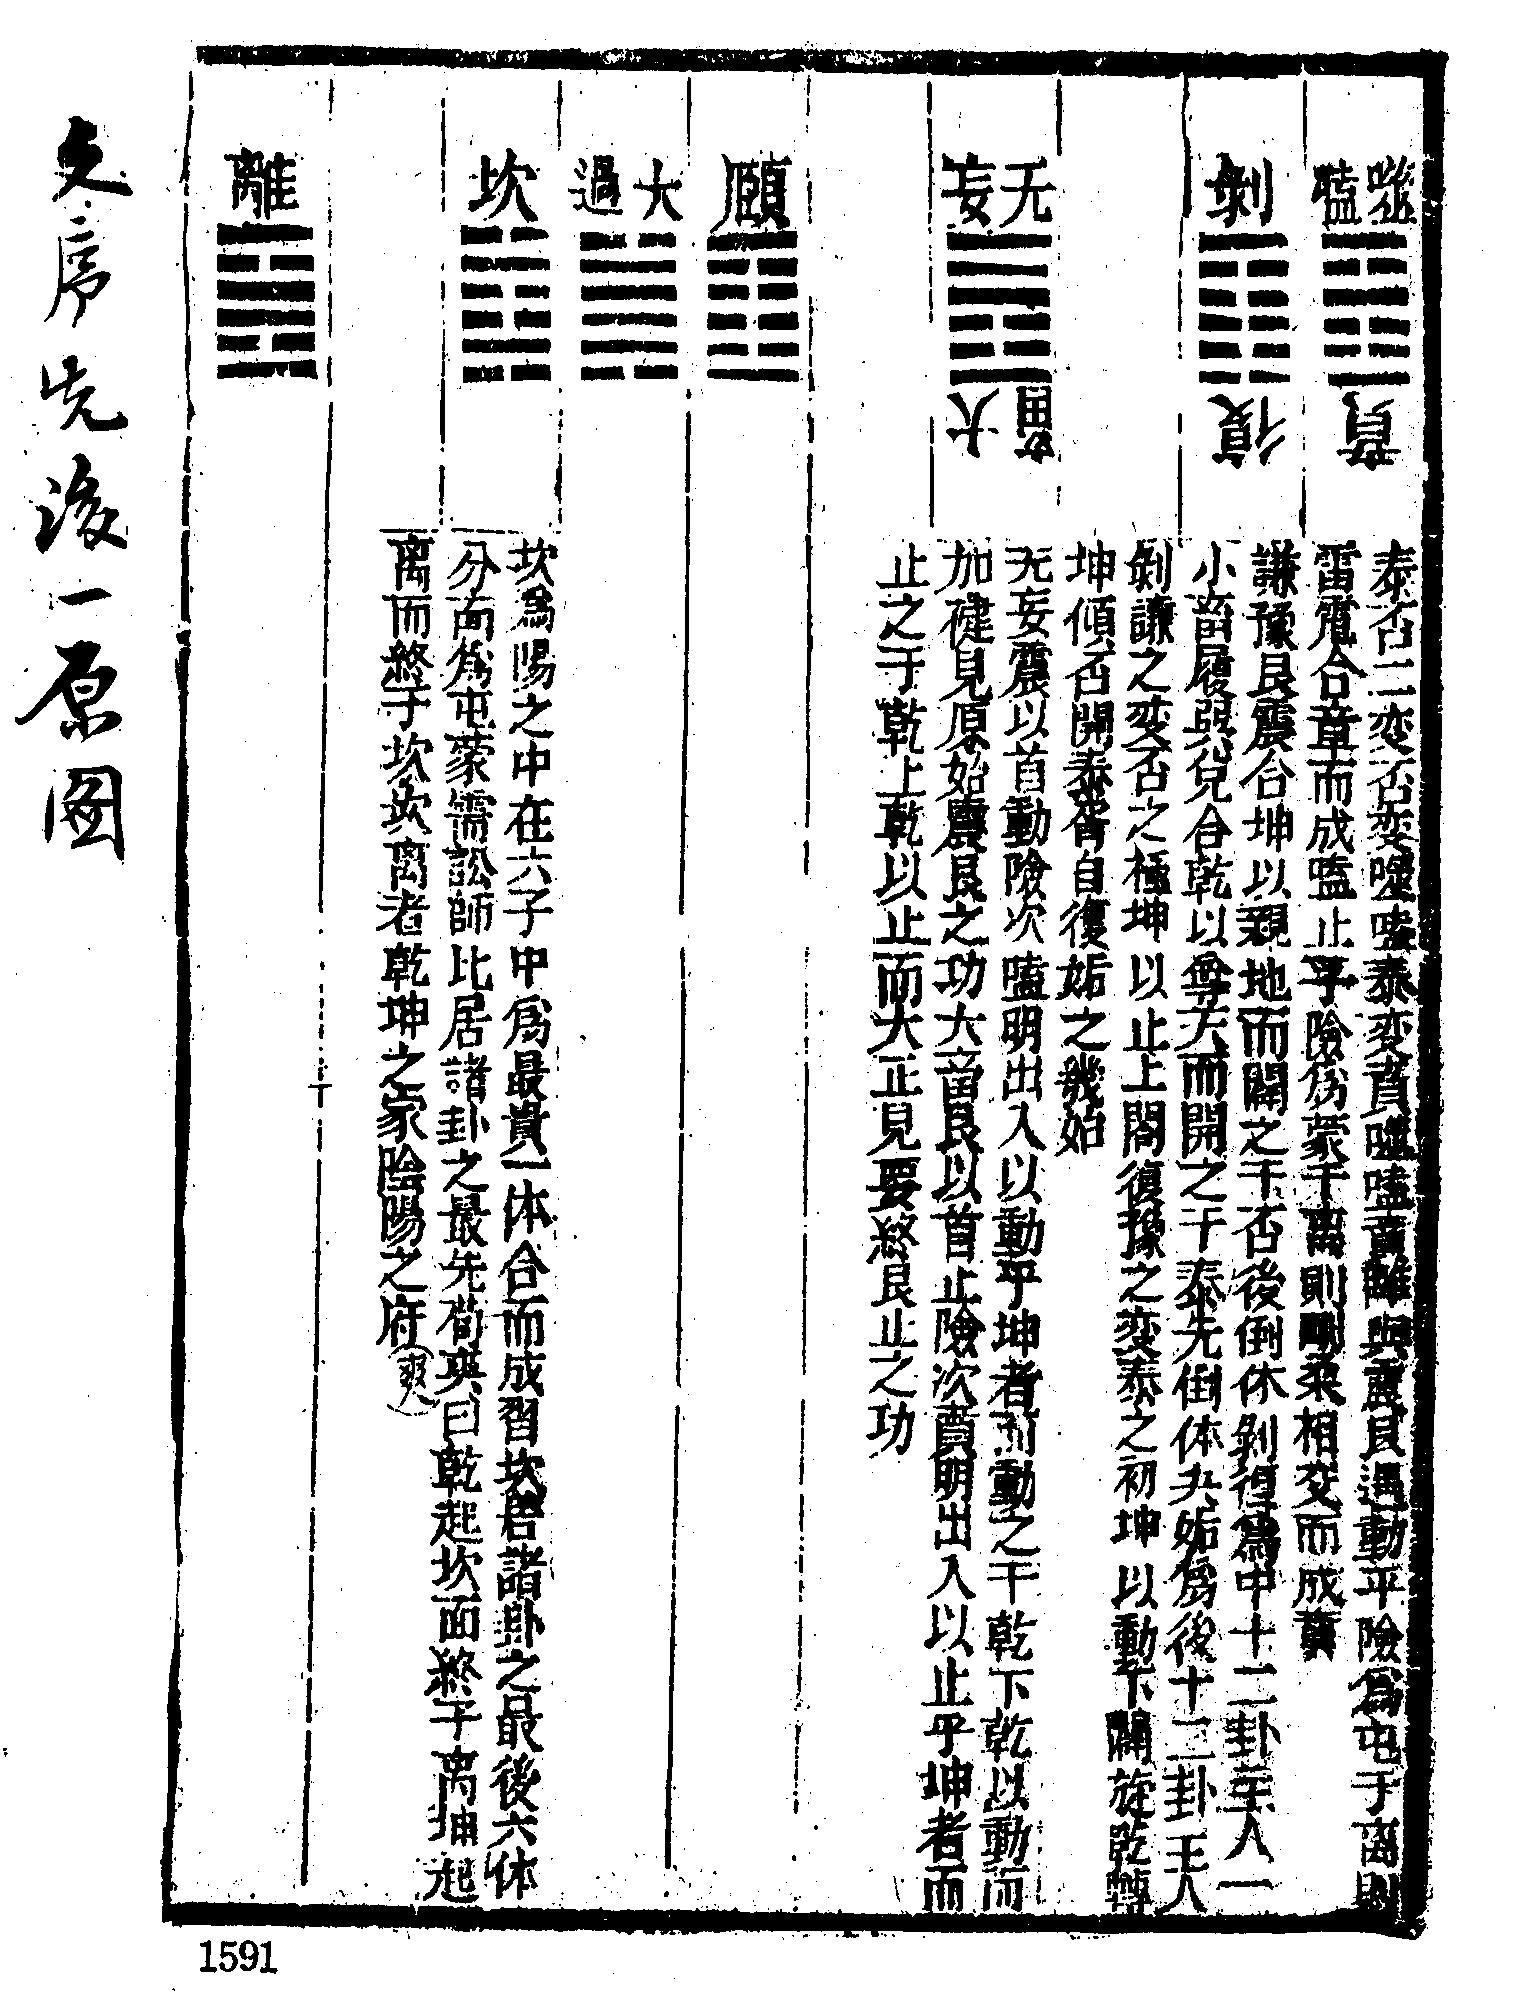 噬嗑
賁
泰否二变否変噬嗑泰変賁噬嗑賁雖與震艮遇動乎險爲屯于离則
雷電合章而成嗑止乎險為蒙于离則剛柔相交而成賁
剝
復
謙豫艮震合坤以親地而闢之于否後倒体剝復為中十二卦至人一
小畜履巽兌合乾以尊天而開之于泰先倒体夬姤為後十二卦王人
剝謙之変否之極坤以止上閤復豫之変泰之初坤以動下闢旋乾轉
坤傾否開泰胥自復姤之幾始
无妄
大畜
无妄震以首動險次嗑明出入以動乎坤者而動之于乾下乾以動而
加健見原始震艮之功大畜艮以首止險次賁明出入以止乎坤者而
止之于乾上乾以止而大正見要終艮止之功
頤
大過
坎
坎為陽之中在六子中為最貴一体合而成習坎居諸卦之最後六体
分而為屯蒙需訟師比居諸卦之最先荀爽曰乾起坎而終于离坤起
离而終于坎坎离者乾坤之家陰陽之府
離
文序先後一原图
1591